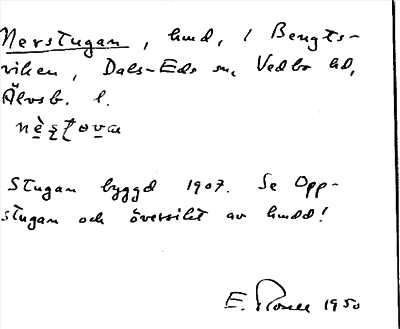 Nerstugan, hmd, i Bengts-
viken, Dals-Eds sn, Vedbo hd,
Älvsb. l.
nèsṭova
Stugan byggd 1907. Se Opp-
stugan och översikt av hmdd!
E. 1950